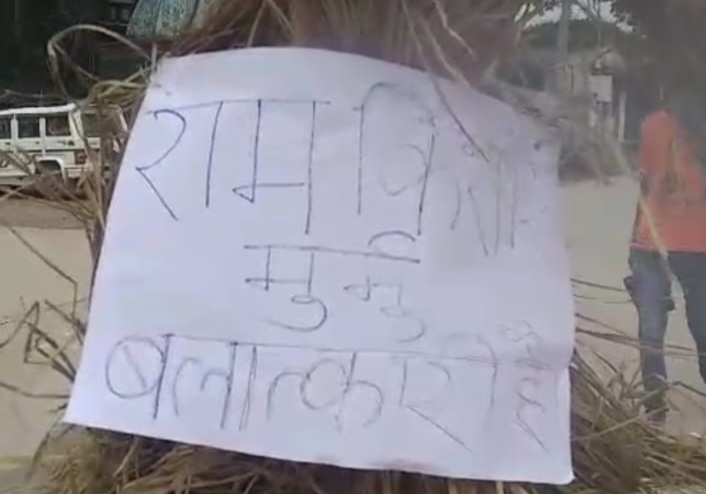 राम
मुर्मु
बलात्कारी है